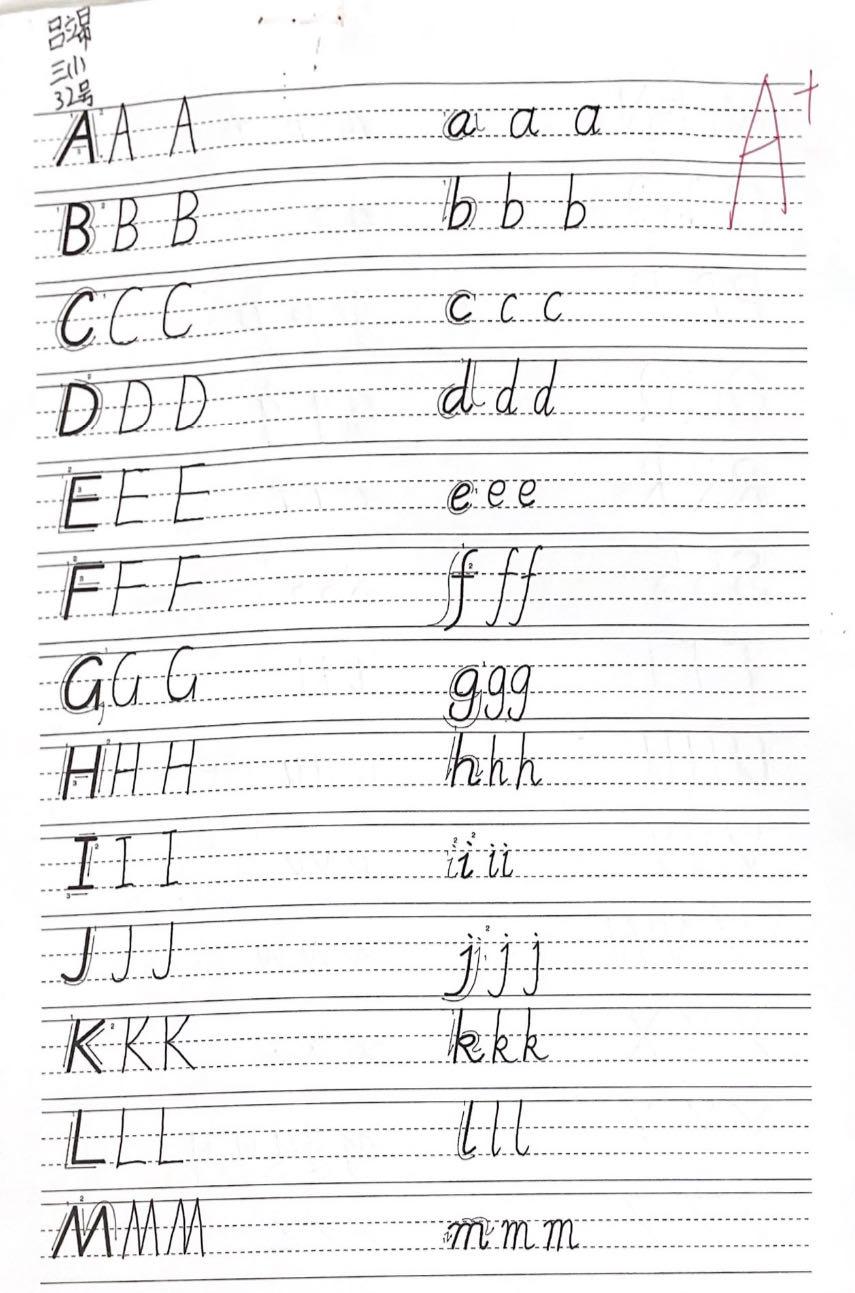 吕立昂
三(1)
32号
A+
A A A a a a
B B B b b b
C C C c c c
D D D d d d
E E E e e e
F F F f f f
G G G g g g
H H H h h h
I I I i i i i
J J J j j j
K K K k k k
L L L l l l
M M M m m m